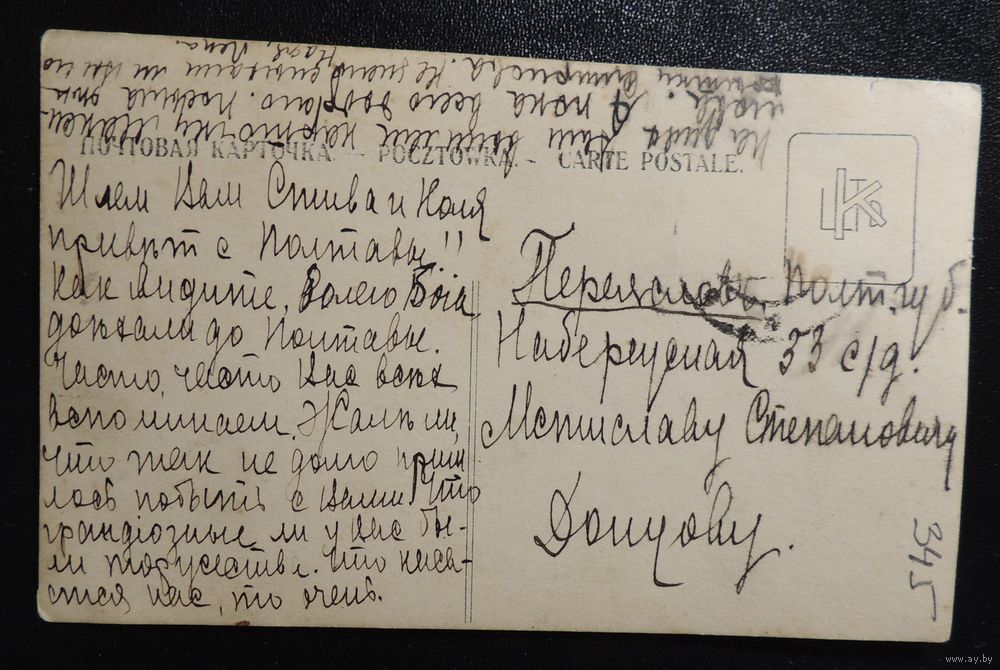 ПОЧТОВАЯ КАРТОЧКА. — POCZTÓWKA. - CARTE POSTALE.
Шлем Вам Спива и Коля
привѣт с Полтавы!!
Как видите, Волею Бога
доѣхали до Полтавы.
Часто, часто Вас всѣх
вспоминаем. Жалѣли,
что так не долго приш
лось побыть с Вами. Что
грандіозные ли у Вас бы-
ли торжества. Что каса-
ется нас, то очень.
А пока всего доброго.
Переяслав Полт. губ.
Набережная 33 с/д.
Мстиславу Степановичу
Донцову.
345
www.ay.by